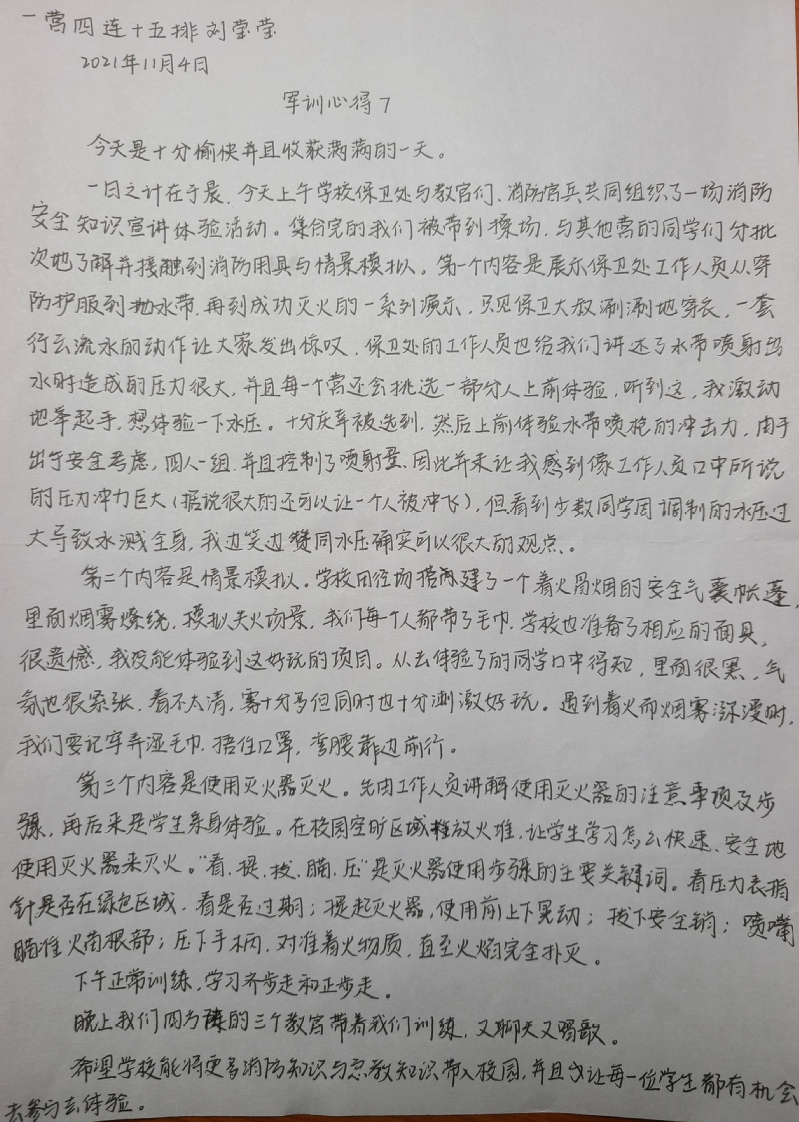 一营四连十五排刘莹莹
2021年11月4日
军训心得7
今天是十分愉快并且收获满满的一天。
一日之计在于晨，今天上午学校保卫处与教官们、消防官兵共同组织了一场消防
安全知识宣讲体验活动。集合完的我们被带到操场，与其他营的同学们分批
次地了解并接触到消防用具与情景模拟。第一个内容是展示保卫处工作人员从穿
防护服到抛水带，再到成功灭火的一系列演示，只见保卫大叔涮涮地穿衣，一套
行云流水的动作让大家发出惊叹，保卫处的工作人员也给我们讲述了水带喷射出
水时造成的压力很大，并且每一个营还会挑选一部分人上前体验，听到这，我激动
地举起手，想体验一下水压。十分庆幸被选到，然后上前体验水带喷枪的冲击力，由于
出于安全考虑，四人一组，并且控制了喷射量，因此并未让我感到像工作人员口中所说
的压力冲力巨大（据说很大的还可以让一个人被冲飞），但看到少数同学因调制的水压过
大导致水溅全身，我边笑边赞同水压确实可以很大的观点。
第二个内容是情景模拟。学校田径场搭建了一个着火冒烟的安全气囊帐蓬，
里面烟雾燎绕，模拟失火场景，我们每个人都带了毛巾，学校也准备了相应的面具，
很遗憾，我没能体验到这好玩的项目。从去体验了的同学口中得知，里面很黑，气
氛也很紧张，看不太清，雾十分多但同时也十分刺激好玩。遇到着火而烟雾弥漫时，
我们要记牢弄湿毛巾，捂住口罩，弯腰靠边前行。
第三个内容是使用灭火器灭火。先由工作人员讲解使用灭火器的注意事项及步
骤，再后来是学生亲身体验。在校园空旷区域摆放火堆，让学生学习怎么快速、安全地
使用灭火器来灭火。“看、提、拔、瞄、压”是灭火器使用步骤的主要关键词。看压力表指
针是否在绿色区域，看是否过期；提起灭火器，使用前上下晃动；拔下安全销；喷嘴
瞄准火苗根部；压下手柄，对准着火物质，直至火焰完全扑灭。
下午正常训练，学习齐步走和正步走。
晚上我们四方阵的三个教官带着我们训练，又聊天又唱歌。
希望学校能将更多消防知识与急救知识带入校园，并且让每一位学生都有机会
去参与去体验。